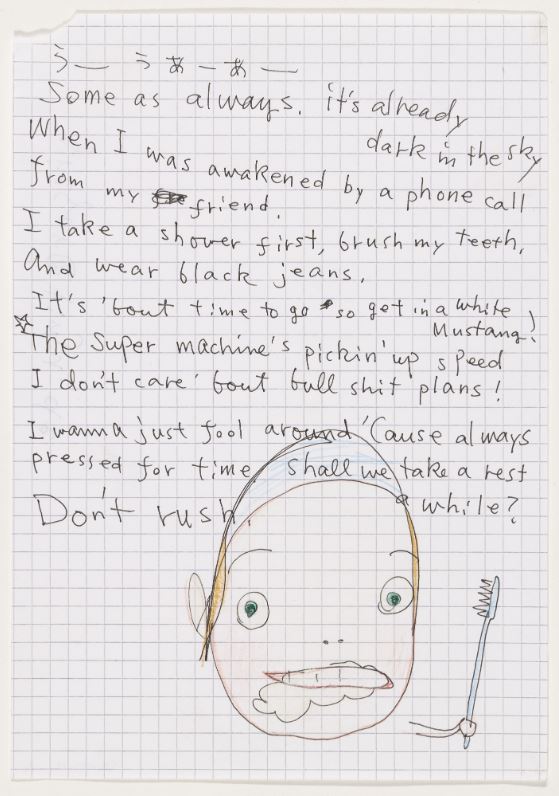 うー うぁーあー
Some as always. it's already
dark in the sky
When I was awakened by a phone call
from my friend.
I take a shower first, brush my teeth,
And wear black jeans.
It's 'bout time to go so get in a white
Mustang!
☆The Super machine's pickin' up speed
I don't care 'bout bull shit plans!
I wanna just fool around 'Cause always
pressed for time shall we take a rest
a while?
Don't rush.